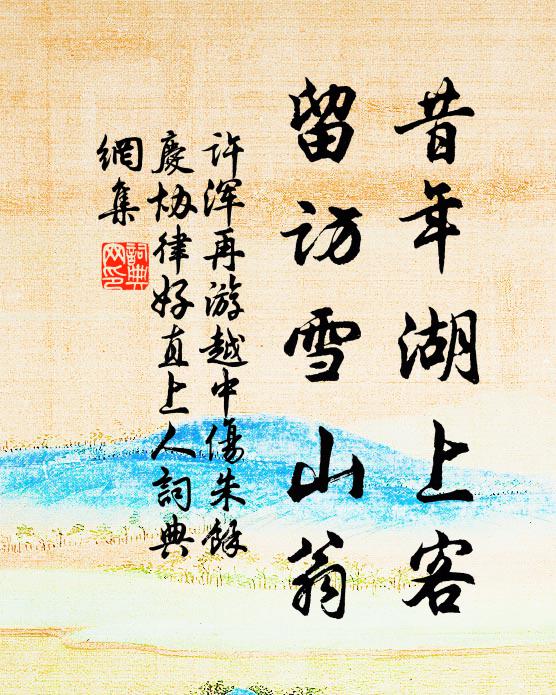 昔年湖上客
留訪雪山翁
许渾再游越中傷朱餘
慶协律好直上人詞典
網集
詞典
网印